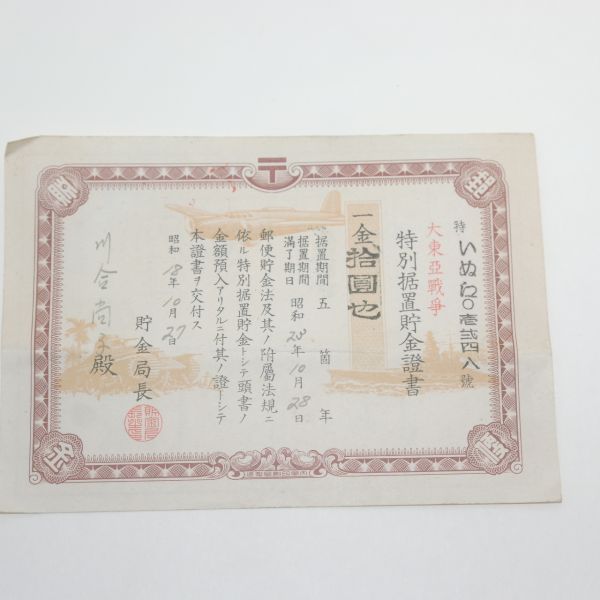 〒
特いぬね〇壱弐四八號
大東亞戰爭
特別据置貯金證書
一金拾圓也
据置期間 五箇年
据置期間滿了期日 昭和23年10月28日
郵便貯金法及其ノ附屬法規ニ
依ル特別据置貯金トシテ頭書ノ
金額預入アリタルニ付其ノ證トシテ
本證書ヲ交付ス
昭和18年10月27日
貯金局長
川合 殿